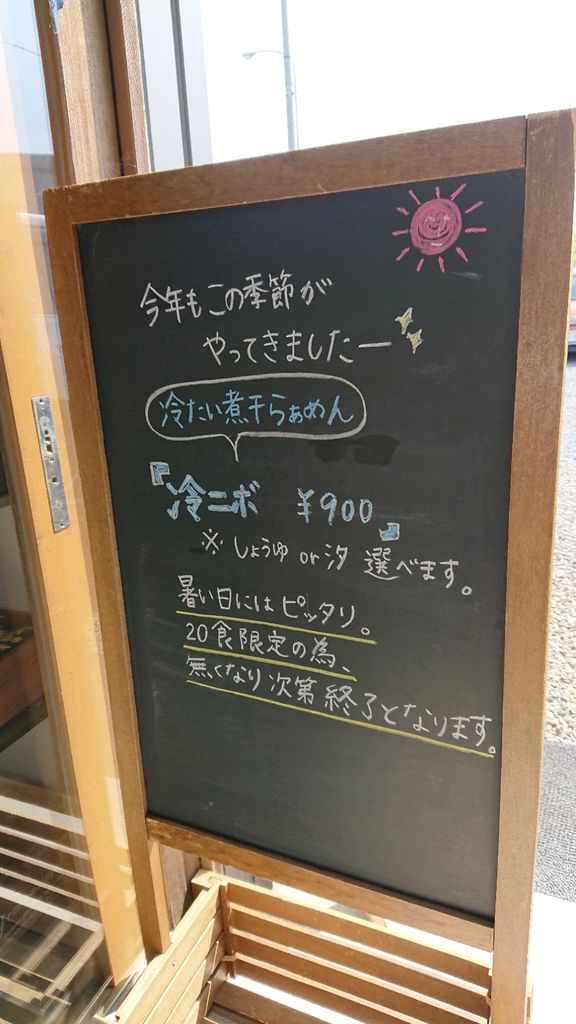 今年もこの季節が
やってきましたー
冷たい煮干らぁめん
『冷ニボ ¥900』
※しょうゆ or 汐 選べます。
暑い日にはピッタリ。
20食限定の為、
無くなり次第終了となります。